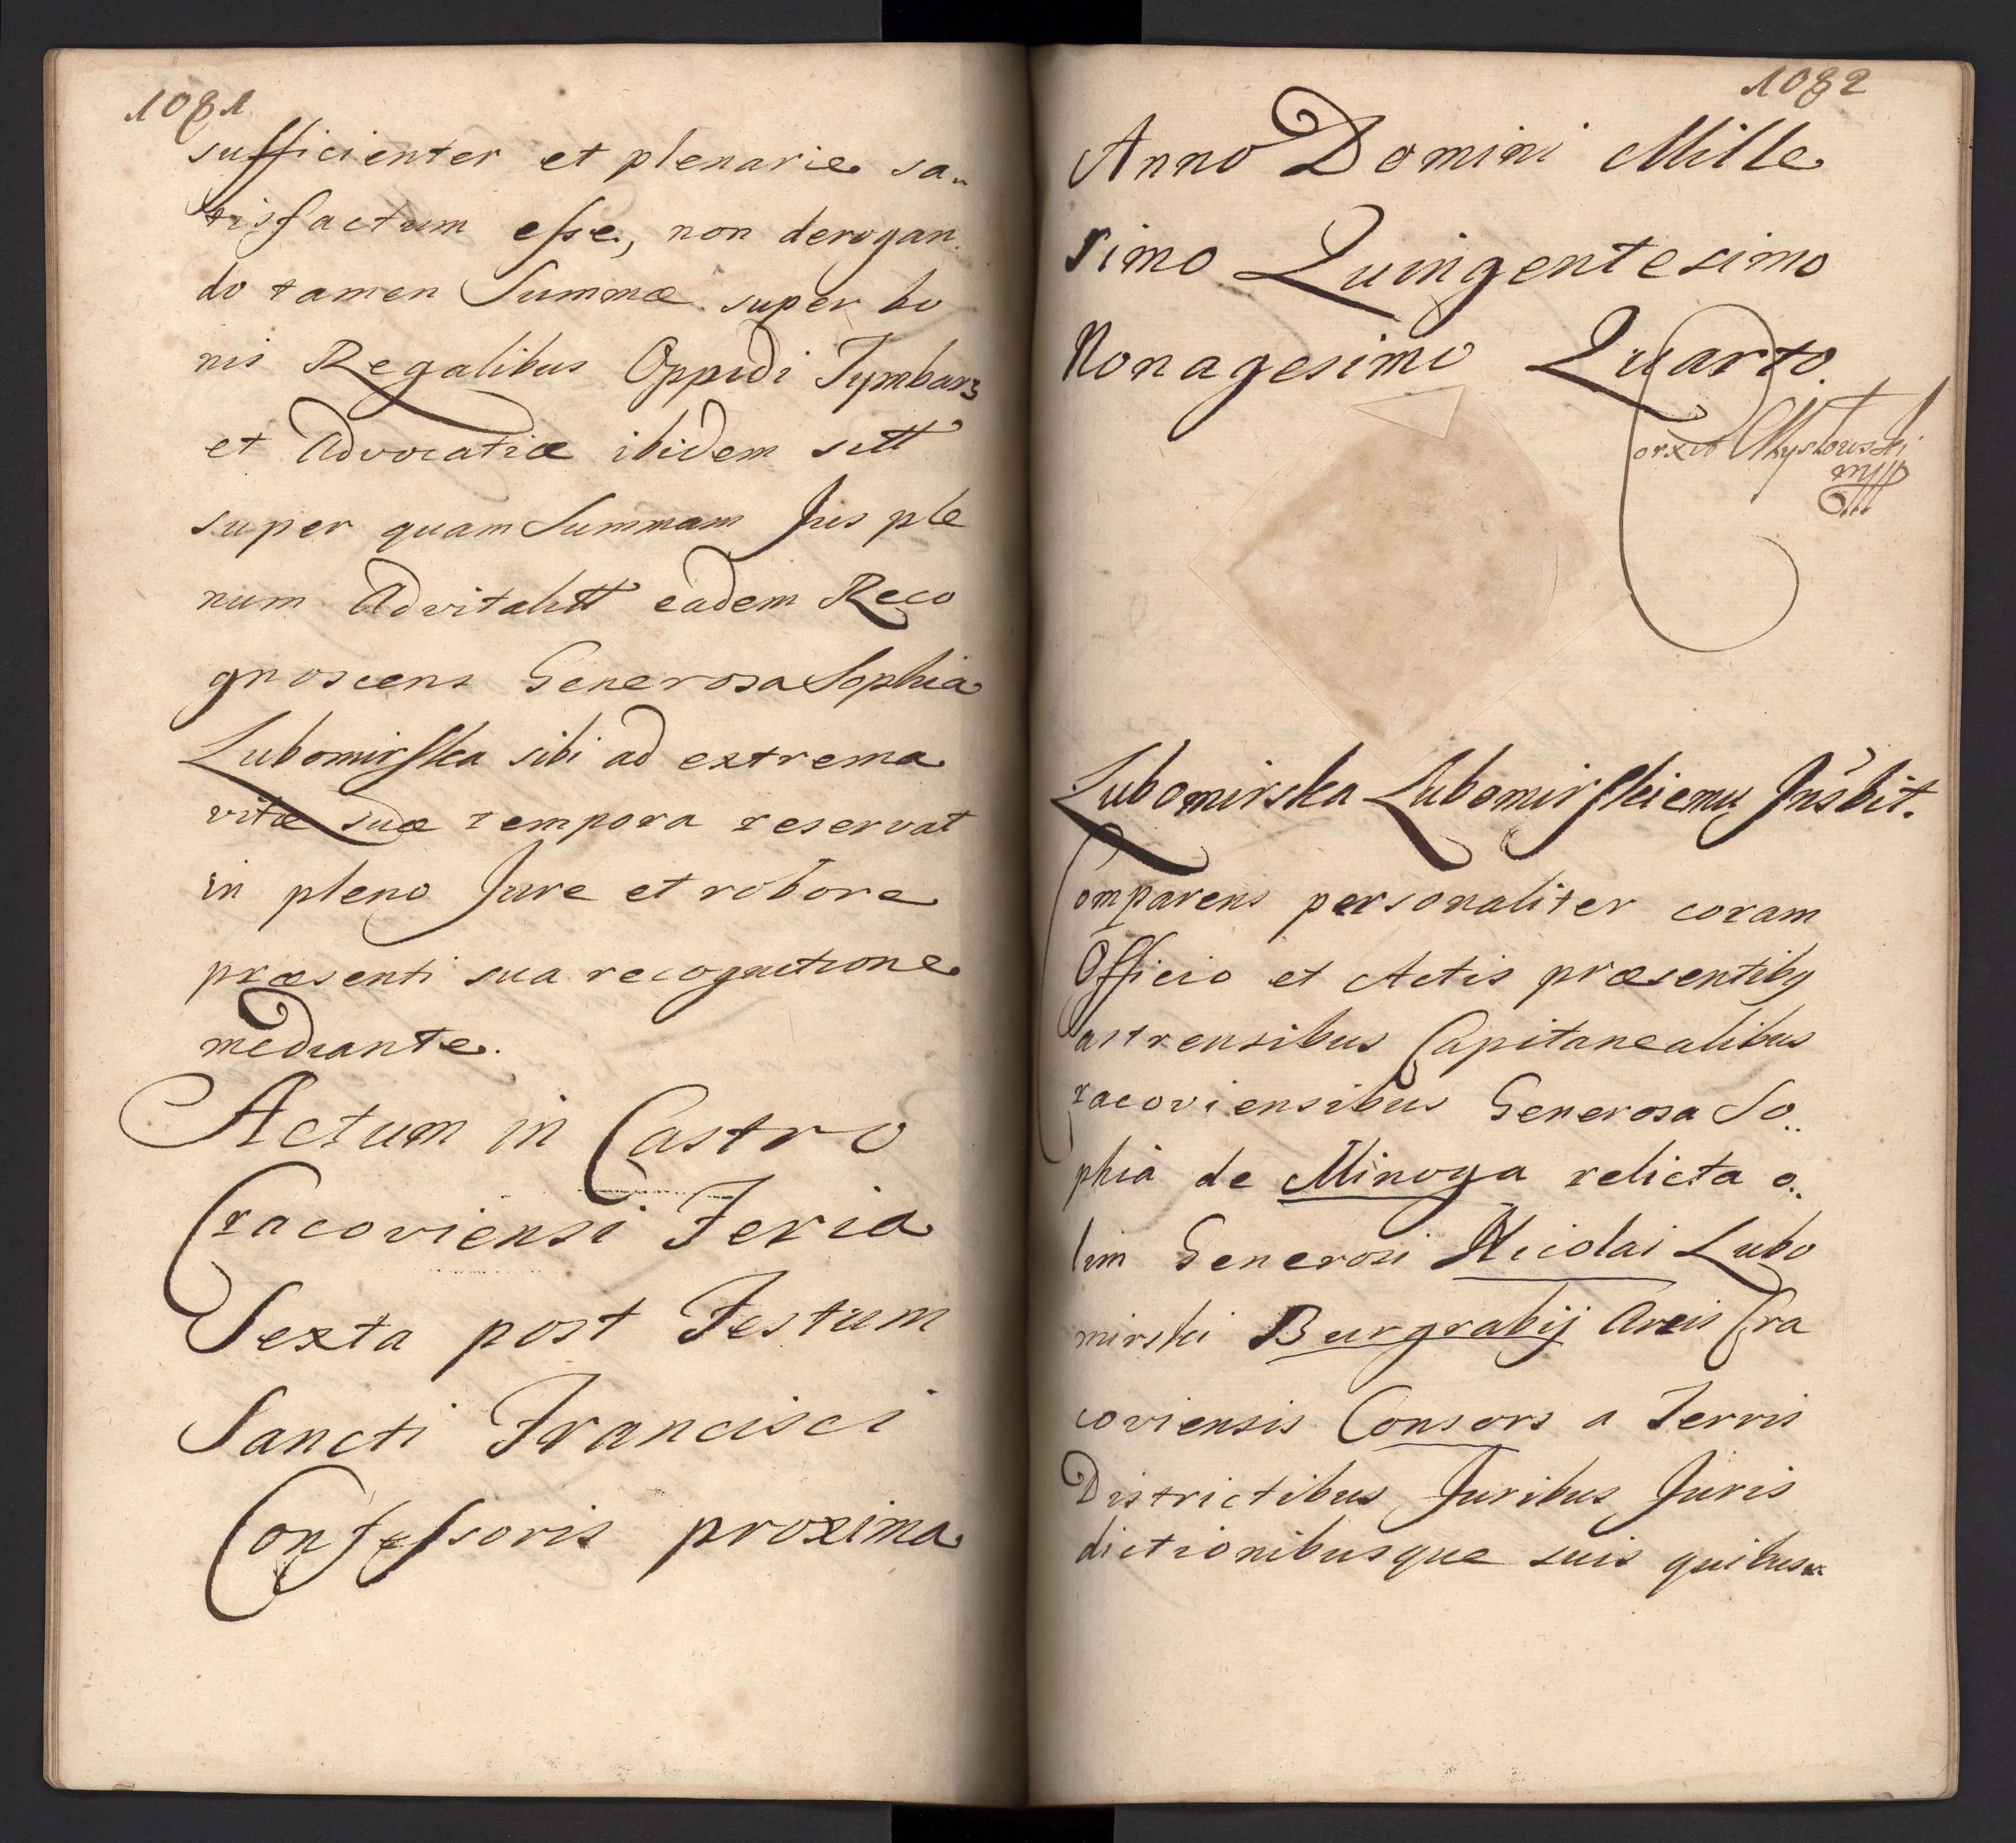 1081
sufficienter et plenarie sa„
tisfactum eſse, non derogan„
do tamen Summæ super bo
nis Regalibus Oppidi Tymbarz
et Advocatiæ ibidem
super quam Summam Jus ple
num Advitalitt eadem Reco
gnoscens Generosa Sophia
Lubomirſka sibi ad extrema
vitæ suæ tempora reservat
in pleno Jure et robore
præsenti sua recognitione
mediante.
Actum in Castro
Cracoviensi Feria
Sexta post Festum
Sancti Francisci
Confeſsoris proxima
1082
Anno Domini Mille
simo Quingentesimo
Nonagesimo Quarto.
Lubomirska Lubomirſkiemu Inſbit.
Comparens personaliter coram
Officio et Actis præsentibꝯ
Castrensibus Capitanealibus
Cracoviensibus Generosa So„
phia de Minoga relicta o„
lim Generosi Nicolai Lubo
mirski Burgrabij Arcis Cra
coviensis Consors a Terris
Districtibus Juribus Juris
dictionibusque suis quibus„